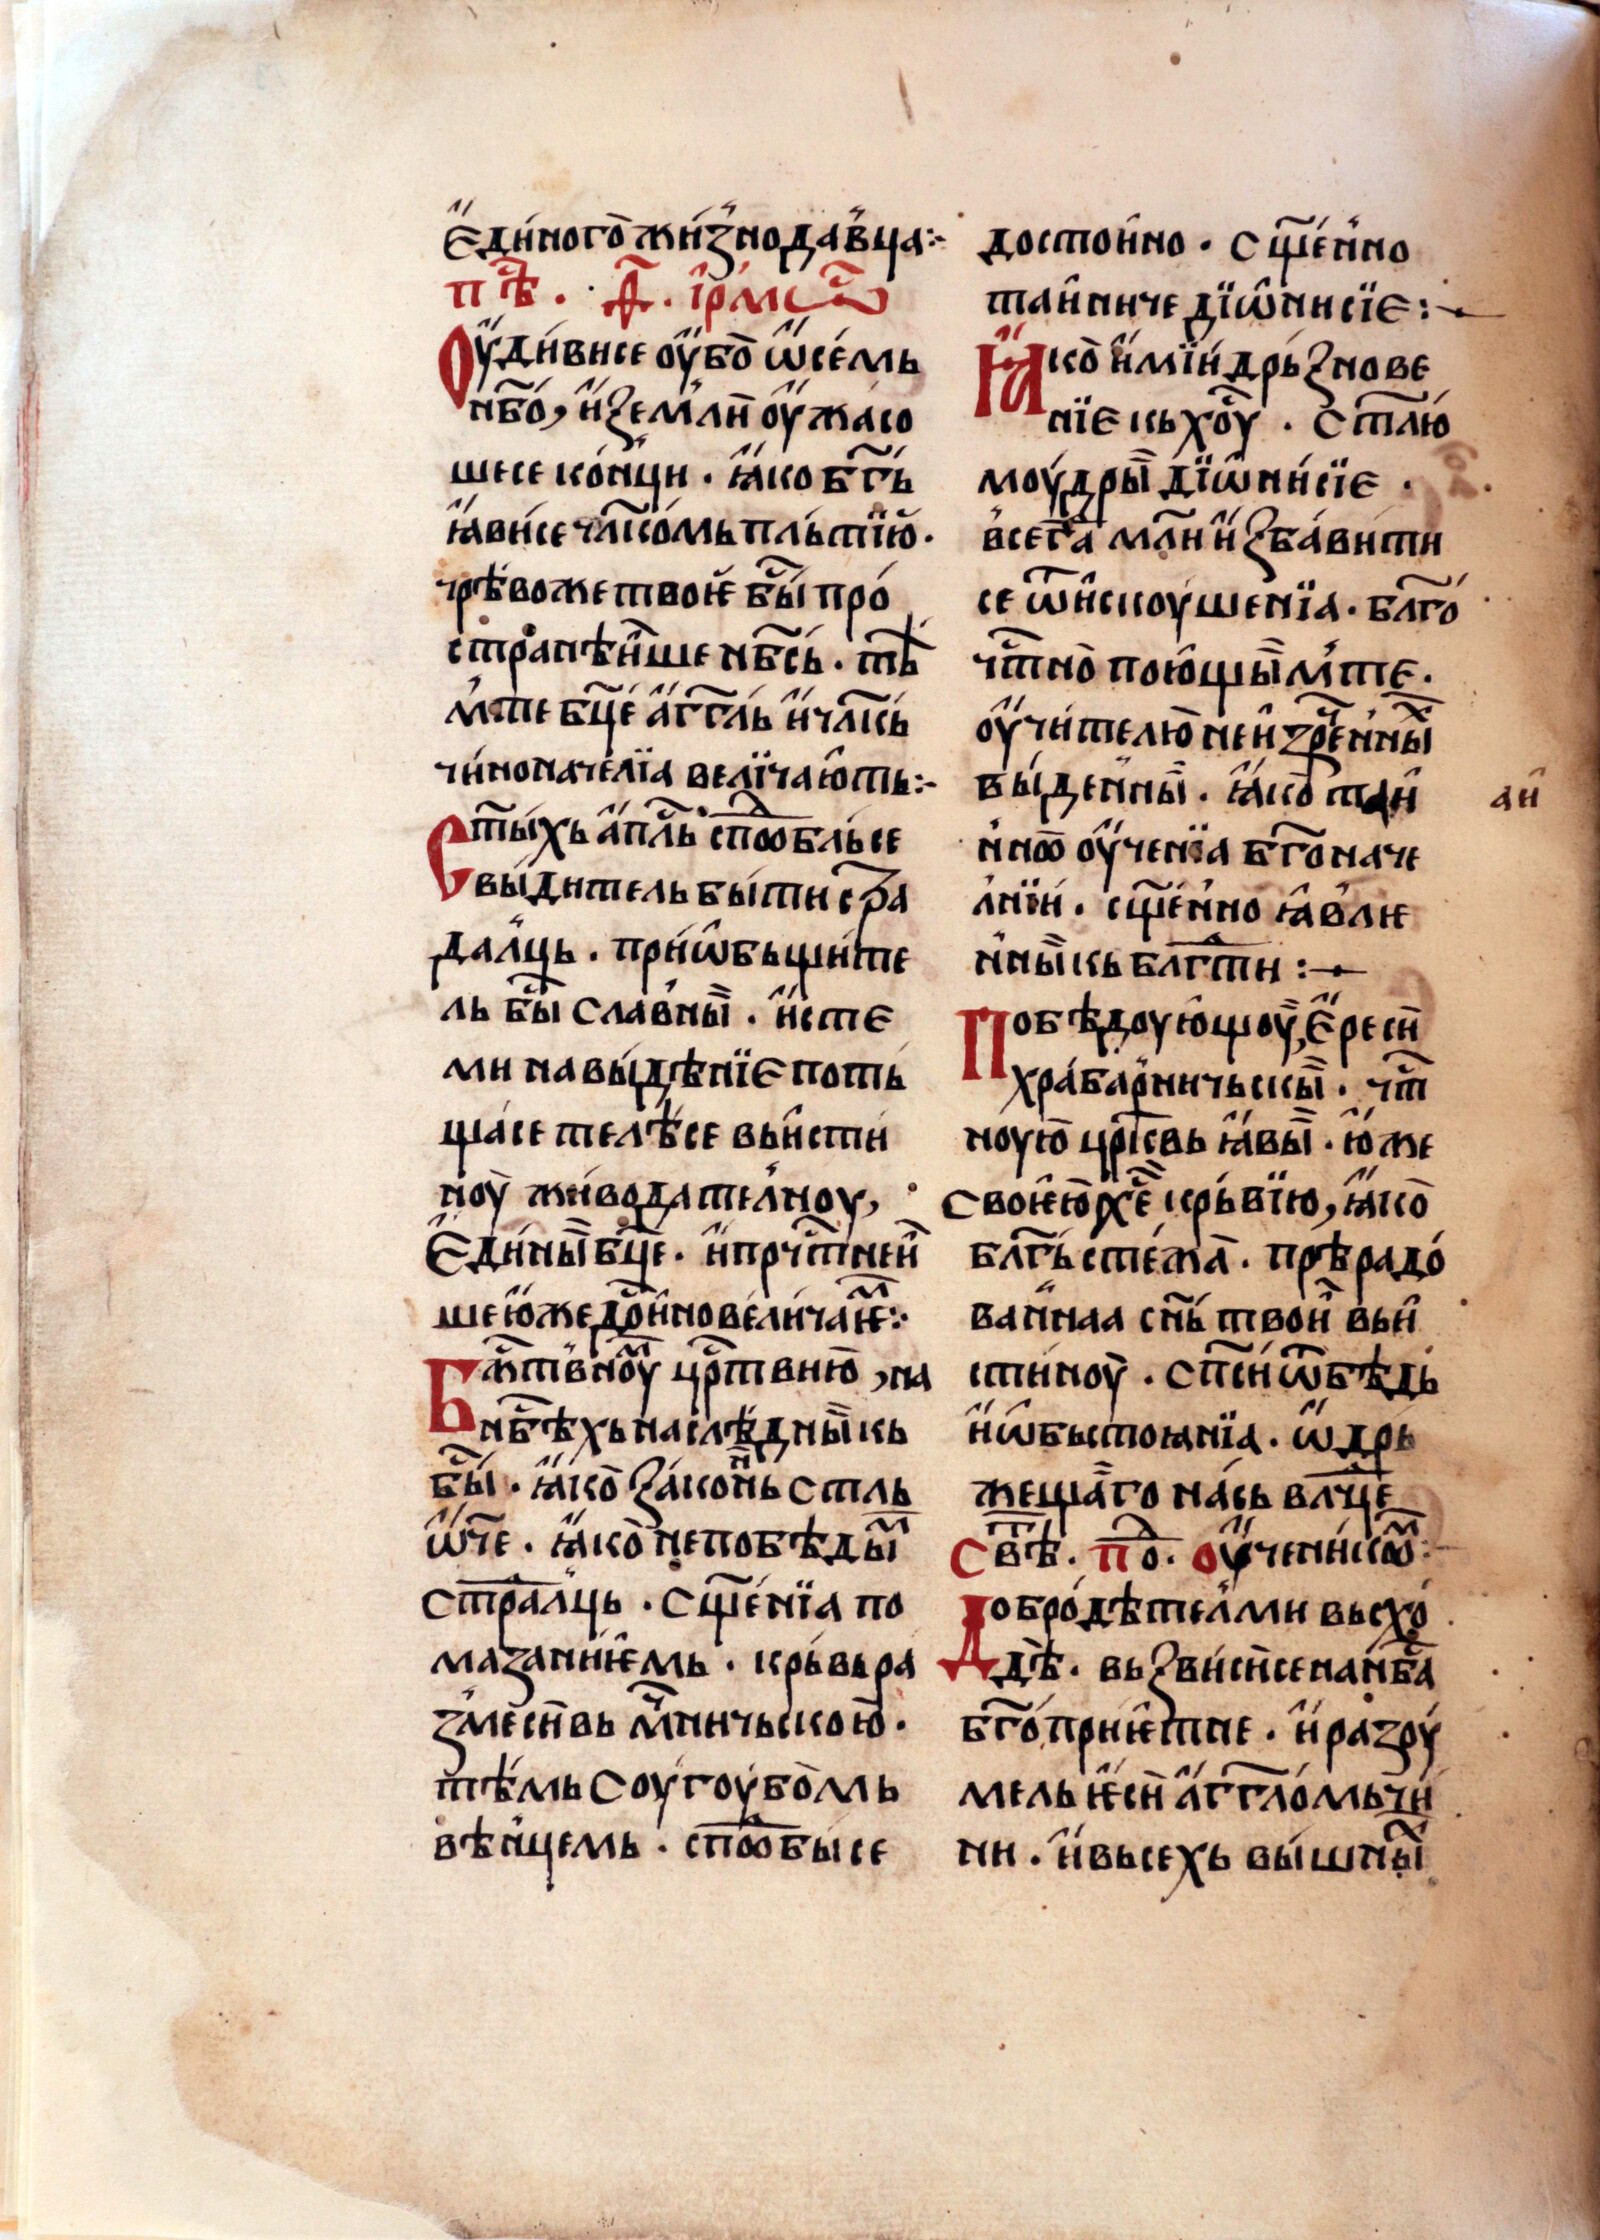 Е҆ди́ного̀ жи́знода́вца:~
пѣ҇ . ѳ҃ . і҆рмо҇
Оу҆ди́висе оу҆̀бо̀ ѡ҆се́мь
нб҃о, и҆ земли̏ оу҆жасо
шесе ко́нци . ꙗ҆́ко бг҃ь
ꙗ҆ви́се чл҃комь пль́тїю̀ .
чрѣ́во же твоѥ̀ бы҇́ про́
странѣ́ишⷨе нб҃сь . тѣ́
м̾те бц҃е а҆́гг҃ль и҆ чл҃кь
чи́ноначелїа вели́чаю҆ть:~
Ст҃ы́хь а҆́пл҃ь спⷣо́бль се
вы́дитель бы́ти стра
далць . прїѡ҆бьщи́те
ль бы҇ славны̏ . и҆сте
ми на вы́дѣ́нїе поть
ща́се телѣ́се вьи҆сти́
ноу̀ жи́водателноу,
Е҆ди́ны̏ бц҃е . и҆ прч҇тнеи
ше ю҆́же до҇и҆но вели́чаѥⷨ:~
Бж҇твноⷨу цр҇твию̀ , на
нб҃ѣхь наслѣ́дны̏кь
бы҇́ . ꙗ҆́ко̀ зако́нⷩь ст҃ль
ѡ҆́ч҃е . ꙗ҆́ко̀ непобѣды́ⷨ
страⷣалць . сщ҃е́нїа по
маза́нїѥмь . крь́вь ра
змѣси̏вь мч҃ничьскою̀ .
тѣ́мь соугоу́бо̀мь
вѣ́нцемь . спⷣо́бы се
достои́но . сщ҃е́нно
таи҆нниче дїѡ҆нисїе :~
Ꙗ҆́ко̀ и҆мїи́ дрь́знове
нїе кь хо҇у . ст҃лю́
моу́дры̏ дїѡ҆ни́сїе .
всег҇а мл҃и и҆́збави́ти
се ѿи҆скоу́шенїа . бл҃го́
ч҇тно̀ пою҆щы̏м̾те .
Оу҆чи́телю̀ неи҆зре҇нны̏
вы́денны̏ . ꙗ҆́ко̀ таи҆
н̾ноѿ оу҆ченїа бг҃оначе
л̾нїи́ . сщ҃е́нно ꙗ҆́влѥ
н̾ны̏ кь бл҃гⷣти :~
аи҆
Побѣ́доую҆щоу̏, е҆́реси̏
хра́бар̾ничьскы̏ . ч҇т
ноую̀ цр҃ковь ꙗ҆́вы̏ . ю҆же
своѥ҆ю̀ х҇е крь́вїю, ꙗ҆́ко̀
бл҃гь́ стежа̀ . прѣрадо́
ваннаа сн҃ь твои̏ вьи҆
стиноу̀ . сп҃си́ ѿбѣ́дь
и҆ѡ҆бьстоꙗнїа . ѡ҆дрь
жеща̏го на́сь влⷣце
Свѣ҇ . поⷣ . оу҆чени́коⷨ:~
Добродѣ́телми вьсхо́
дѣ̀ . вьзви́си̏се на нб҃а
бг҃о́прїѥ́тне . и҆ разоу́
мель ѥ҆си̏ а҆́гг҃ло́мь чи́
ни . и҆ вьсехь вы́шны̏